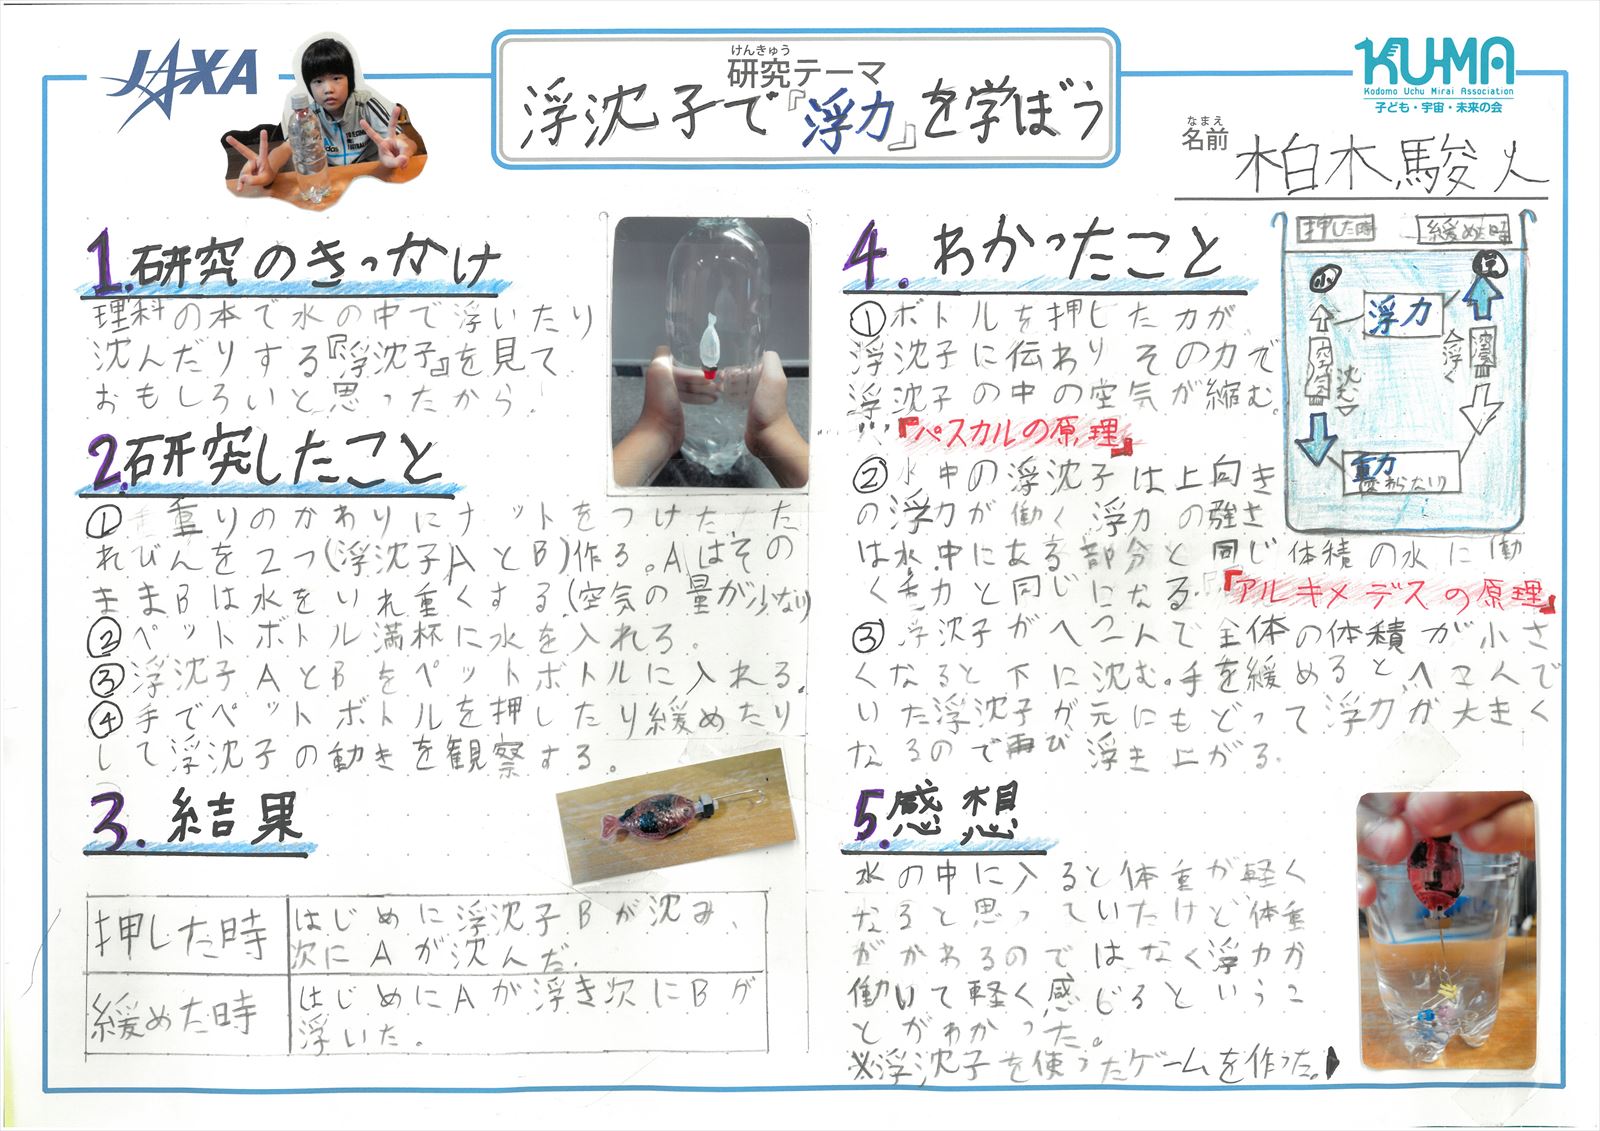 JAXA
けんきゅう
研究テーマ
浮沈子で『浮力』を学ぼう
KU-MA
Kodomo Uchu Mirai Association
子ども・宇宙・未来の会
なまえ
名前
柏木駿人
1.研究のきっかけ
理科の本で水の中で浮いたり
沈んだりする『浮沈子』を見て
おもしろいと思ったから!
2.研究したこと
① 重りのかわりにナットをつけた た
れびんを2つ(浮沈子AとB)作る。Aはその
ままBは水をいれ重くする(空気の量が少ない)
②ペットボトル満杯に水を入れろ。
③浮沈子AとBをペットボトルに入れる。
④手でペットボトルを押したり緩めたり
して浮沈子の動きを観察する。
3.結果
押した時
はじめに浮沈子Bが沈み、
次にAが沈んだ.
緩めた時
はじめにAが浮き次にBが
浮いた。
4.わかったこと
①ボトルを押した力が
浮沈子に伝わりその力で
浮沈子の中の空気が縮む。
『パスカルの原理』
②水中の浮沈子は上向き
の浮力が働く浮力の強さ
は水中にある部分と同じ体積の水に働
く重力と同じになる.
『アルキメデスの原理』
③浮沈子がへこんで全体の体積が小さ
くなると下に沈む。手を緩めるとへこんで
いた浮沈子が元にもどって浮力が大きく
なるので再び浮き上がる.
押した時
緩めた時
小
浮力
空気
沈む
浮く
重力
変わらない
5.感想
水の中に入ると体重が軽く
なると思っていたけど体重
がかわるのではなく浮力が
働いて軽く感じるというこ
とがわかった。
※浮沈子を使ったゲームを作った。